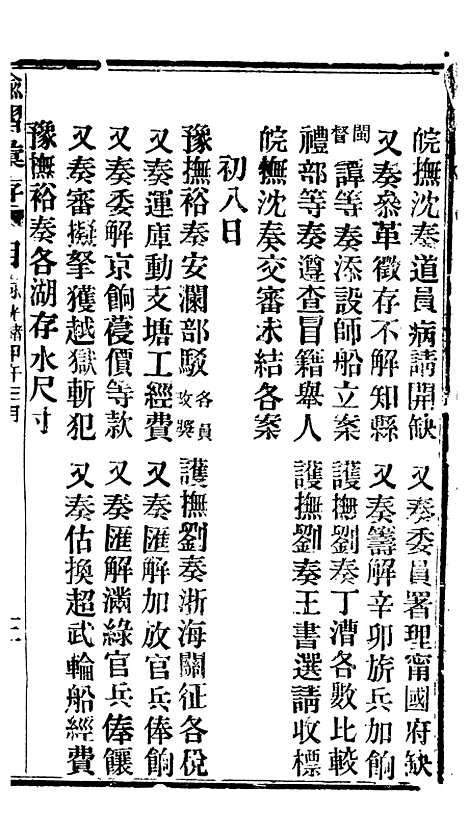 皖撫沈奏道員病請開缺　又奏委員署理甯國府缺
又奏叅革徵存不解知縣　又奏籌解辛卯旂兵加餉
閩督譚等奏添設師船立案　護撫劉奏丁漕各數比較
禮部等奏遵查冒籍舉人　護撫劉奏王書選請收標
皖撫沈奏交審未結各案
初八日
豫撫裕奏安瀾部駁各員改奬　護撫劉奏浙海關征各稅
又奏運庫動支塘工經費　又奏匯解加放官兵俸餉
又奏委解京餉薓價等款　又奏匯解滿綠官兵俸饟
又奏審擬拏獲越獄斬犯　又奏估換超武輪船經費
豫撫裕奏各湖存水尺寸
諭摺彙存　目　光緒甲午三月　三